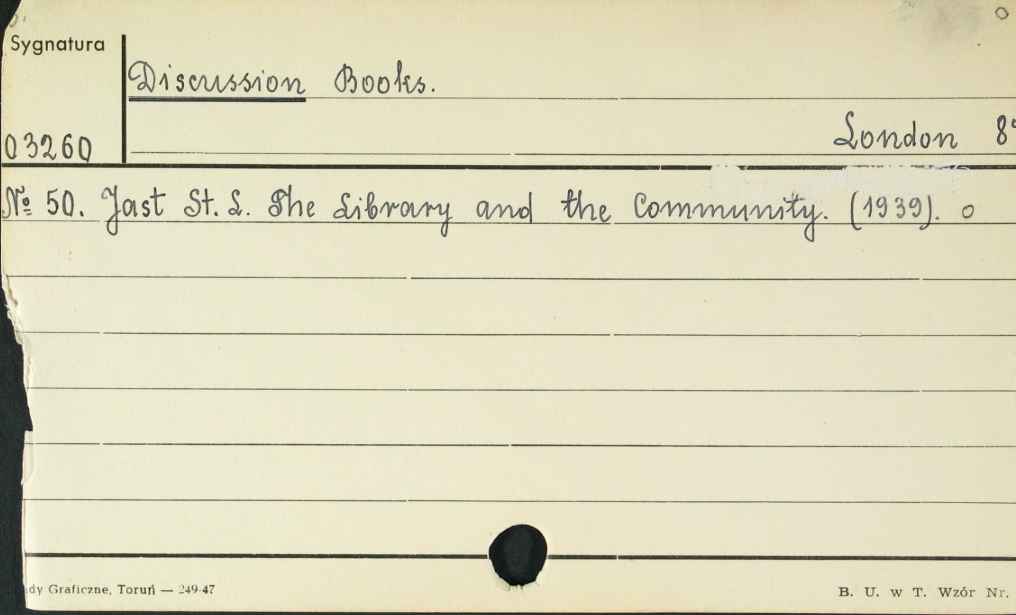 Sygnatura
Discussion Books.
03260
London 8°
№ 50. Jast St. L. The Library and the Community. (1939). o
dy Graficzne, Toruń — 249-47
B. U. w T. Wzór Nr.